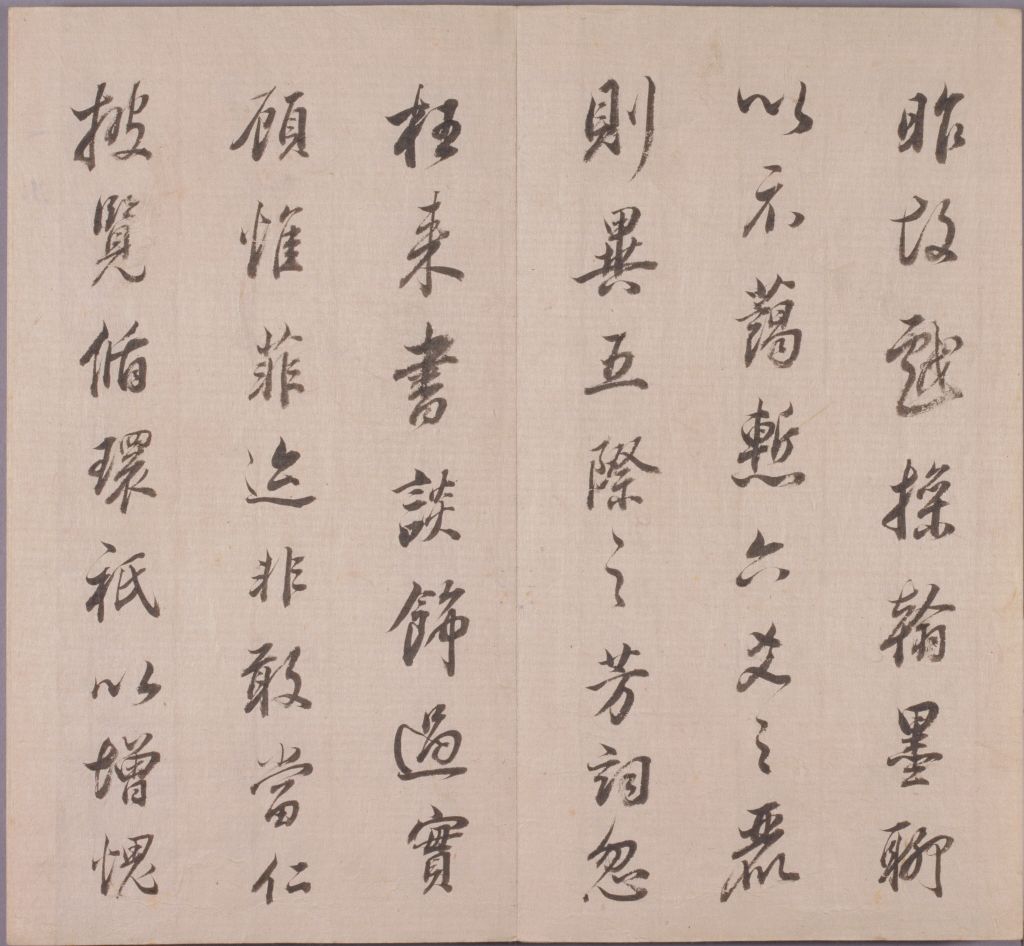 昨故戲操翰墨聊
以示藹慙六爻之麗
則異五際之芳詞忽
枉来書談飾過實
顧惟菲迹非敢當仁
披覽循環祗以增愧